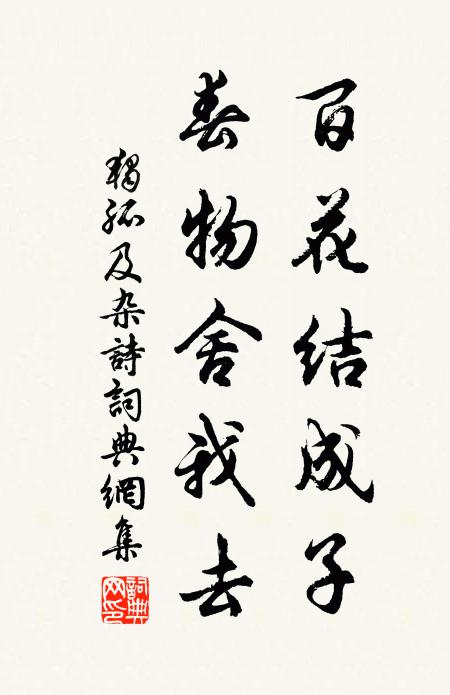 百花结成子
春物舍我去
独孤及杂詩詞典網集
詞典网印